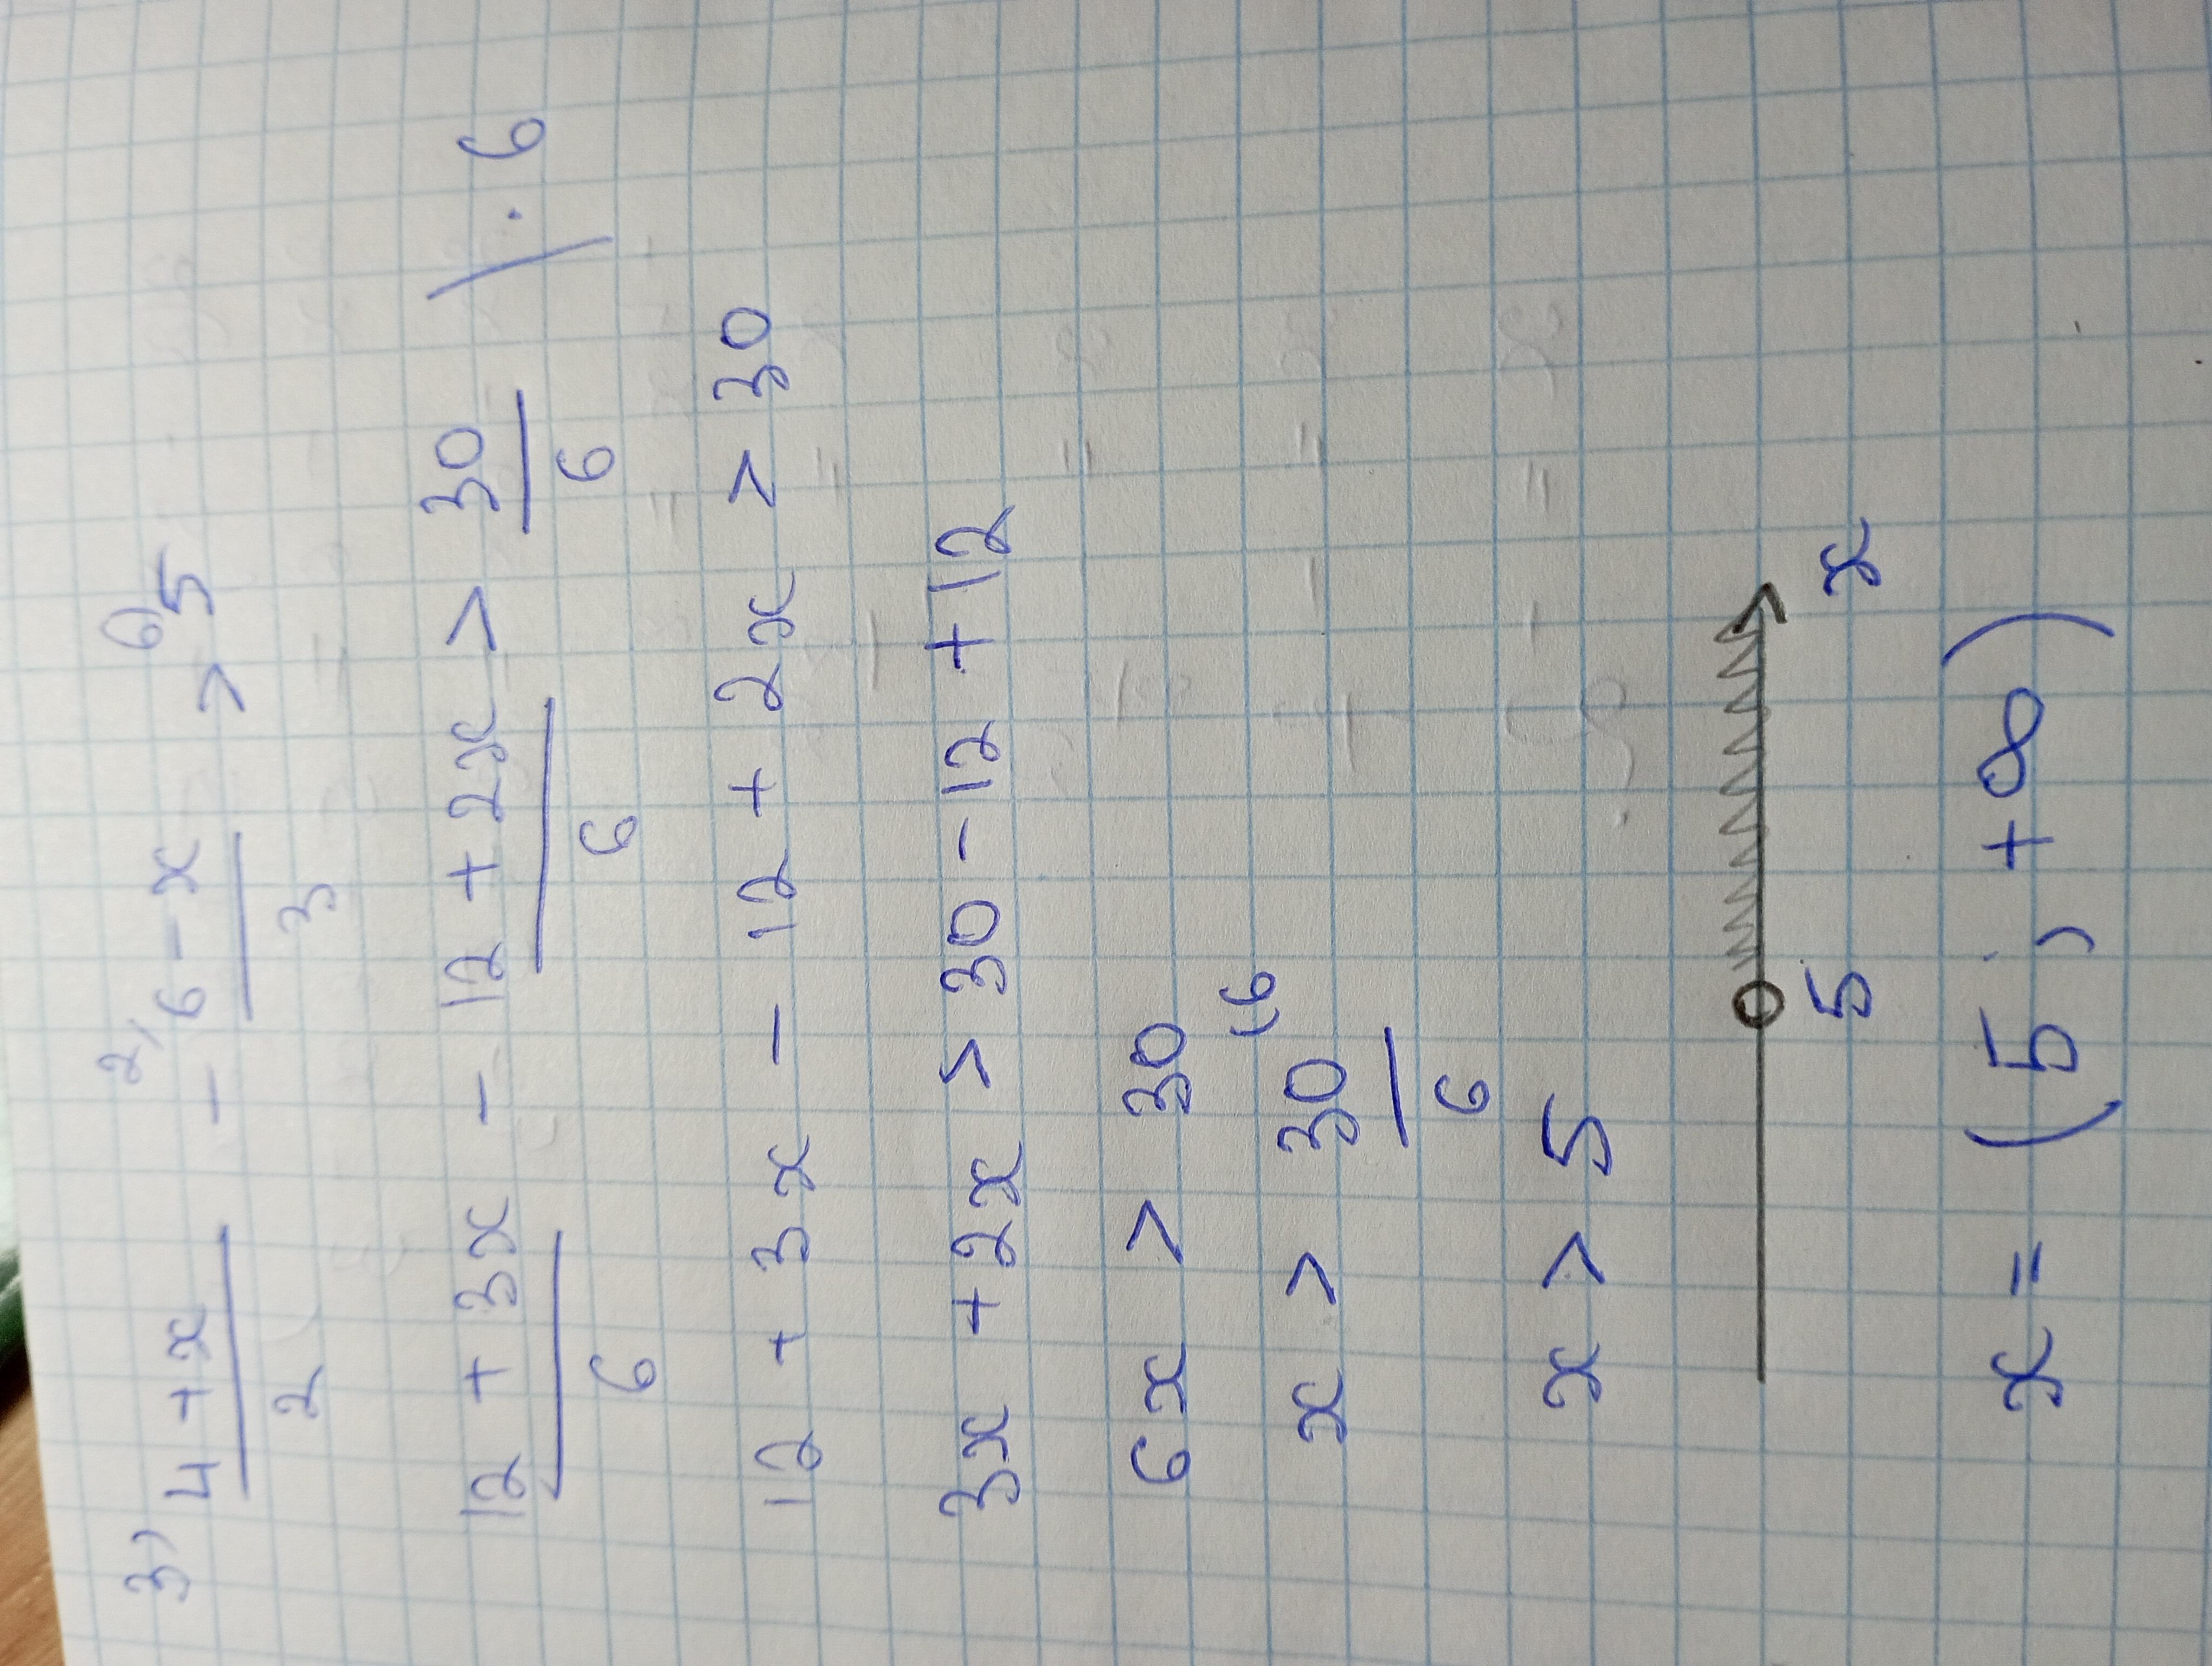 3) (4+x)/2 - 2) (6-x)/3 > 6) 5
(12 + 3x)/6 - (12 + 2x)/6 > 30/6 | · 6
12 + 3x - 12 + 2x > 30
3x + 2x > 30 - 12 + 12
6x > 30
x > 30/6 (6
x > 5
5 x
x = (5; +∞)